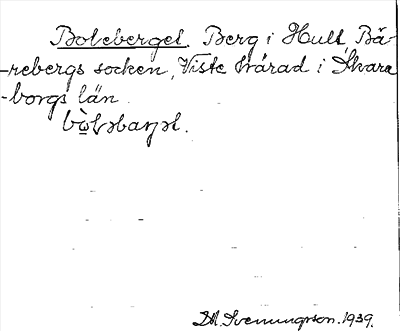 Boleberget. Berg i Hult, Bä-
-rebergs socken, Viste härad i Skara-
-borgs län.
D.A. Svenungsson. 1939.